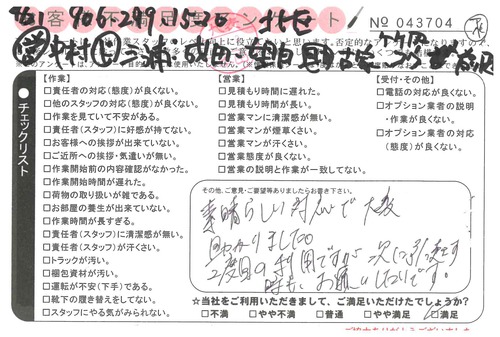 No 043704
チェックリスト
【作業】
□責任者の対応(態度)が良くない。
□他のスタッフの対応(態度)が良くない。
□作業を見ていて不安がある。
□責任者(スタッフ)に好感が持てない。
□お客様への挨拶が出来ていない。
□ご近所への挨拶・気遣いが無い。
□作業開始前の内容確認がなかった。
□作業開始時間が遅れた。
□荷物の取り扱いが雑である。
□お部屋の養生が出来ていない。
□作業時間が長すぎる。
□責任者(スタッフ)に清潔感が無い。
□責任者(スタッフ)が汗くさい。
□トラックが汚い。
□梱包資材が汚い。
□運転が不安(下手)である。
□靴下の履き替えをしてない。
□スタッフにやる気がみられない。
【営業】
□見積もり時間に遅れた。
□見積もり時間が長い。
□営業マンに清潔感が無い。
□営業マンが煙草くさい。
□営業マンが汗くさい。
□営業態度が良くない。
□営業の説明と作業が一致してない。
【受付・その他】
□電話の対応が良くない。
□オプション業者の説明
・作業が良くない。
□オプション業者の対応
(態度)が良くない。
その他、ご意見・ご要望等ありましたらお書き下さい。
素晴らしい対応で大変
助かりました。
2度目の利用ですが次に引っ越す
時も、お願いしたいです。
☆当社をご利用いただきまして、ご満足いただけたでしょうか?
□不満 □やや不満 □普通 □やや満足 □満足
ご協力ありがとうございました